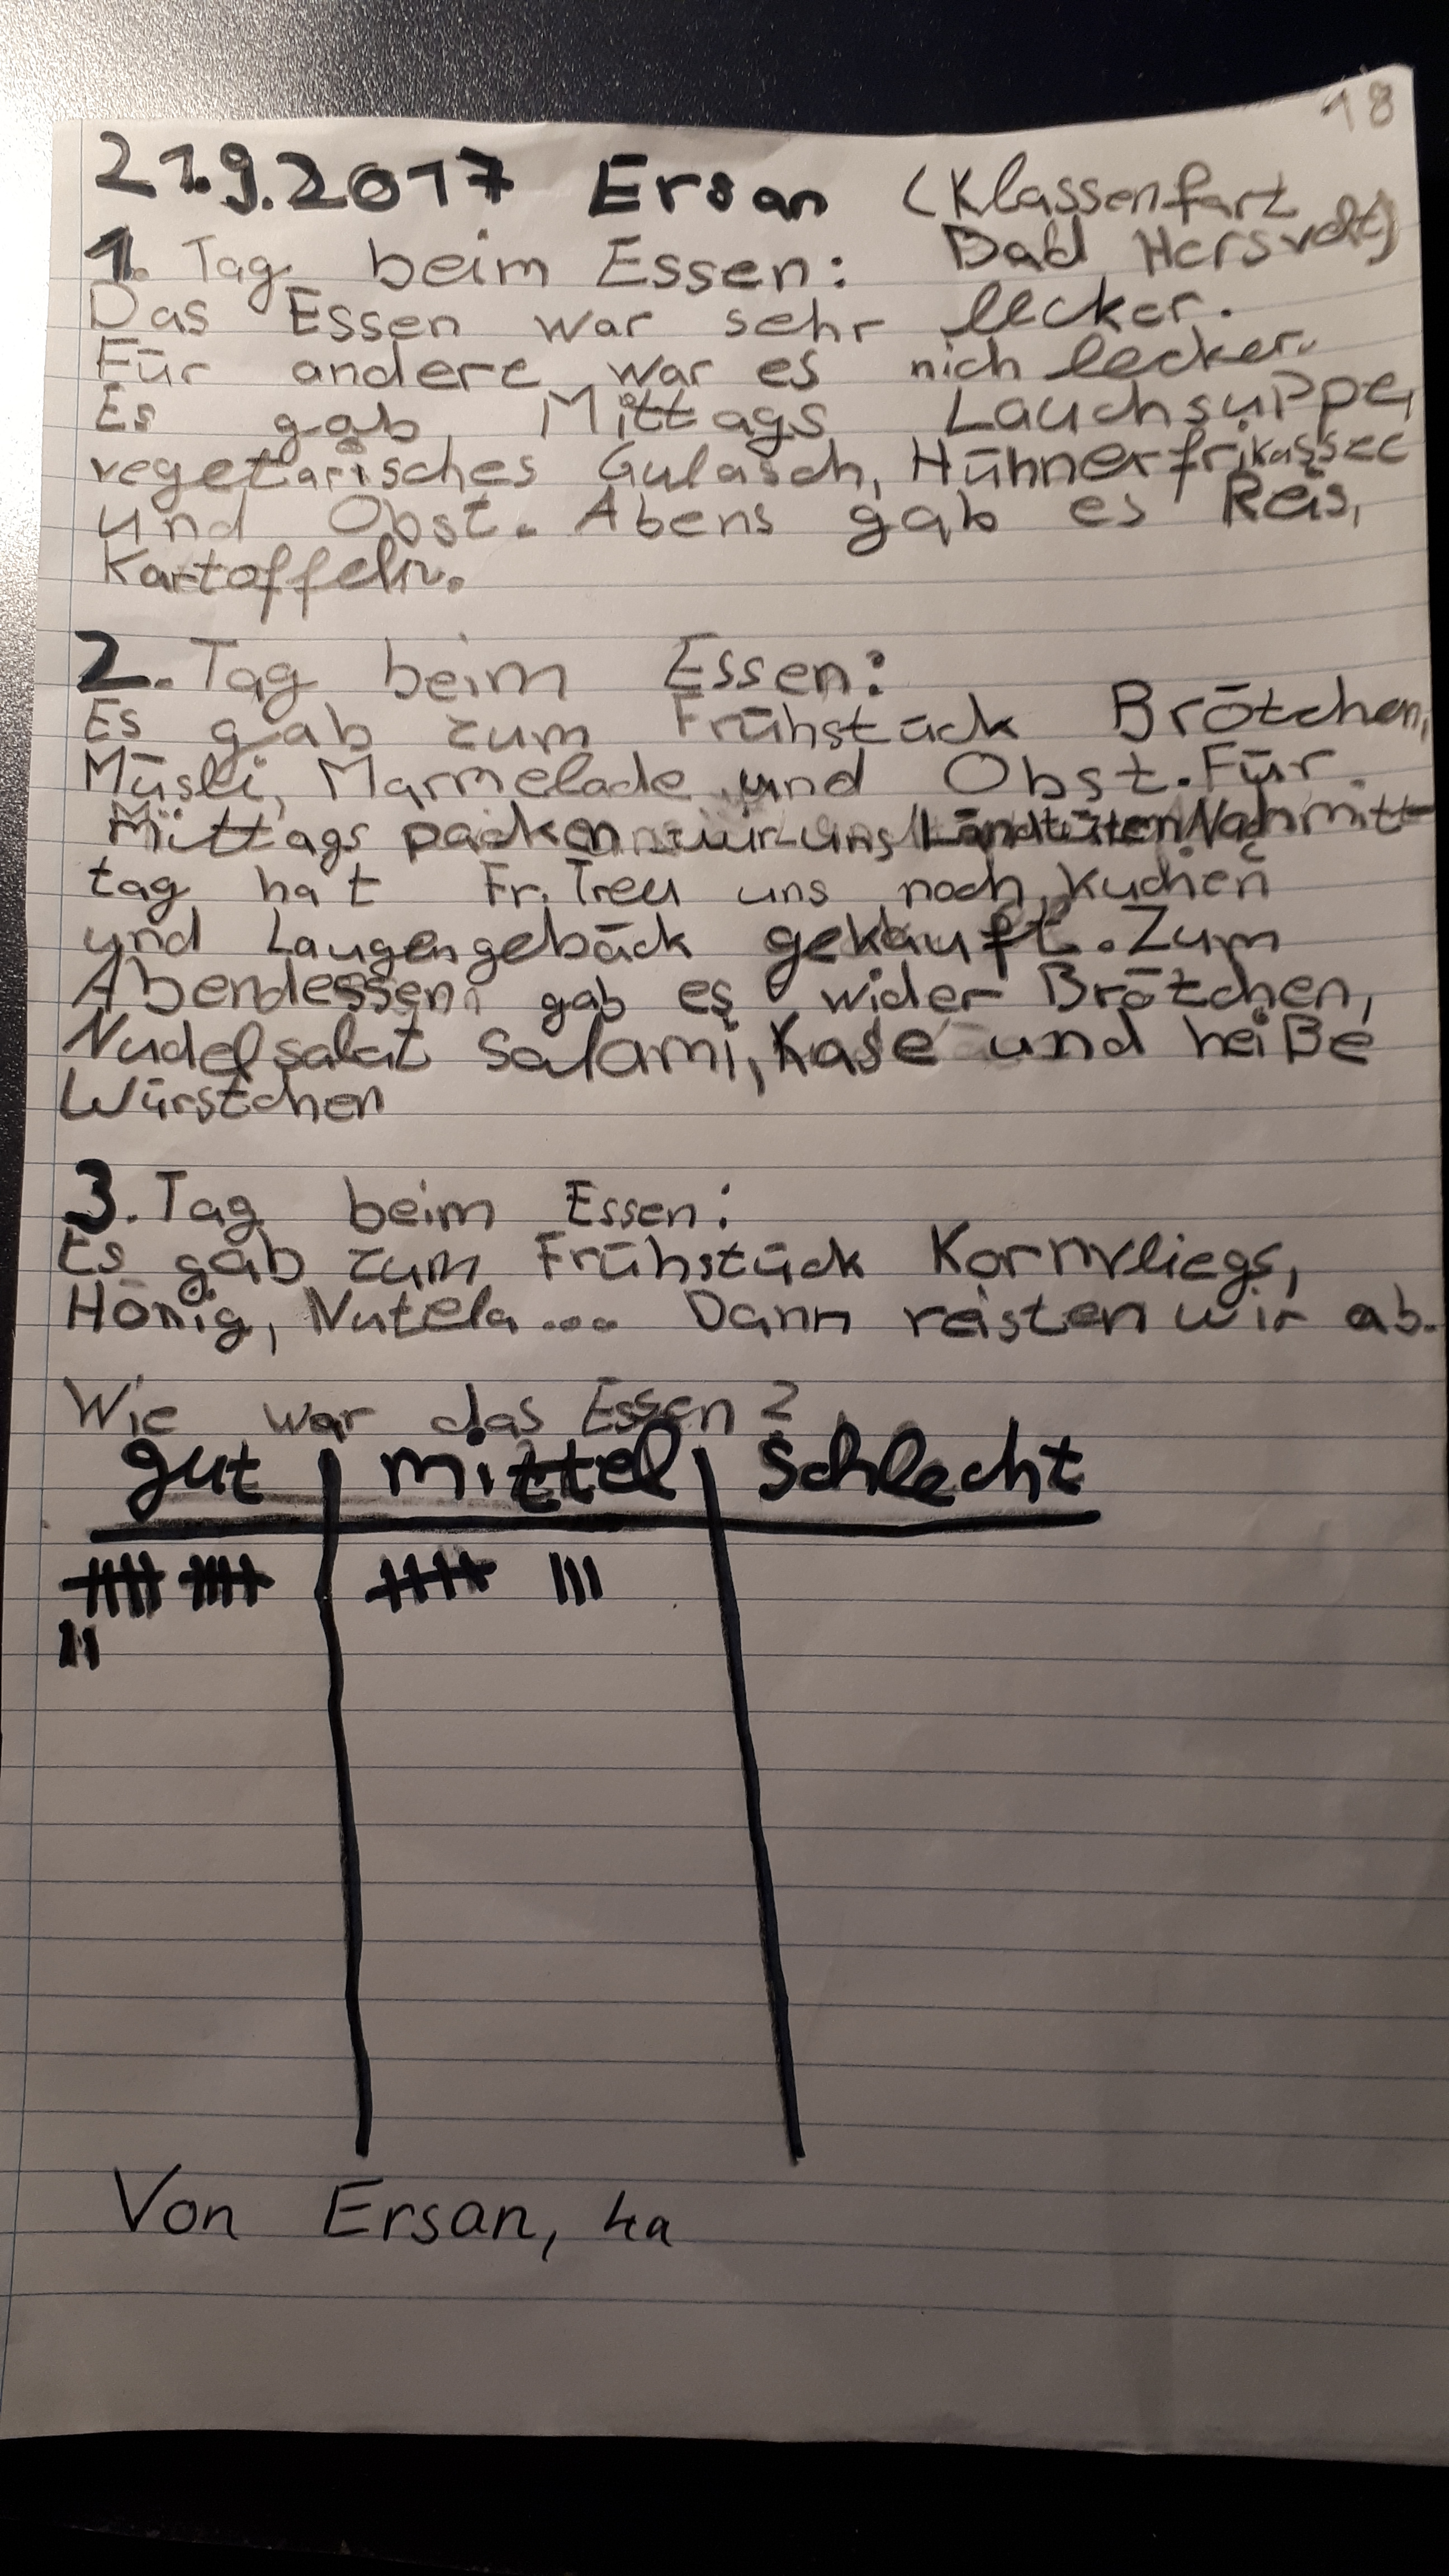 18
21.9.2017 Ersan (Klassenfart
Bad Hersveld)
1. Tag beim Essen:
Das Essen war sehr lecker.
Für andere war es nich lecker.
Es gab Mittags Lauchsuppe,
vegetarisches Gulasch, Hühnerfrikassee
und Obst. Abens gab es Reis,
Kartoffeln.
2. Tag beim Essen:
Es gab zum Frühstück Brötchen,
Müsli, Marmelade und Obst. Für
Mittags packen wir uns Nachmit
tag hat Fr. Treu uns noch Kuchen
und Laugengebäck gekauft. Zum
Abendessen gab es wider Brötchen,
Nudelsalat Salami, Käse und heiße
Würstchen
3. Tag beim Essen:
Es gab zum Frühstück Kornvliegs,
Honig, Nutela... Dann reisten wir ab.
Wie war das Essen?
gut mittel schlecht
Von Ersan, 4a